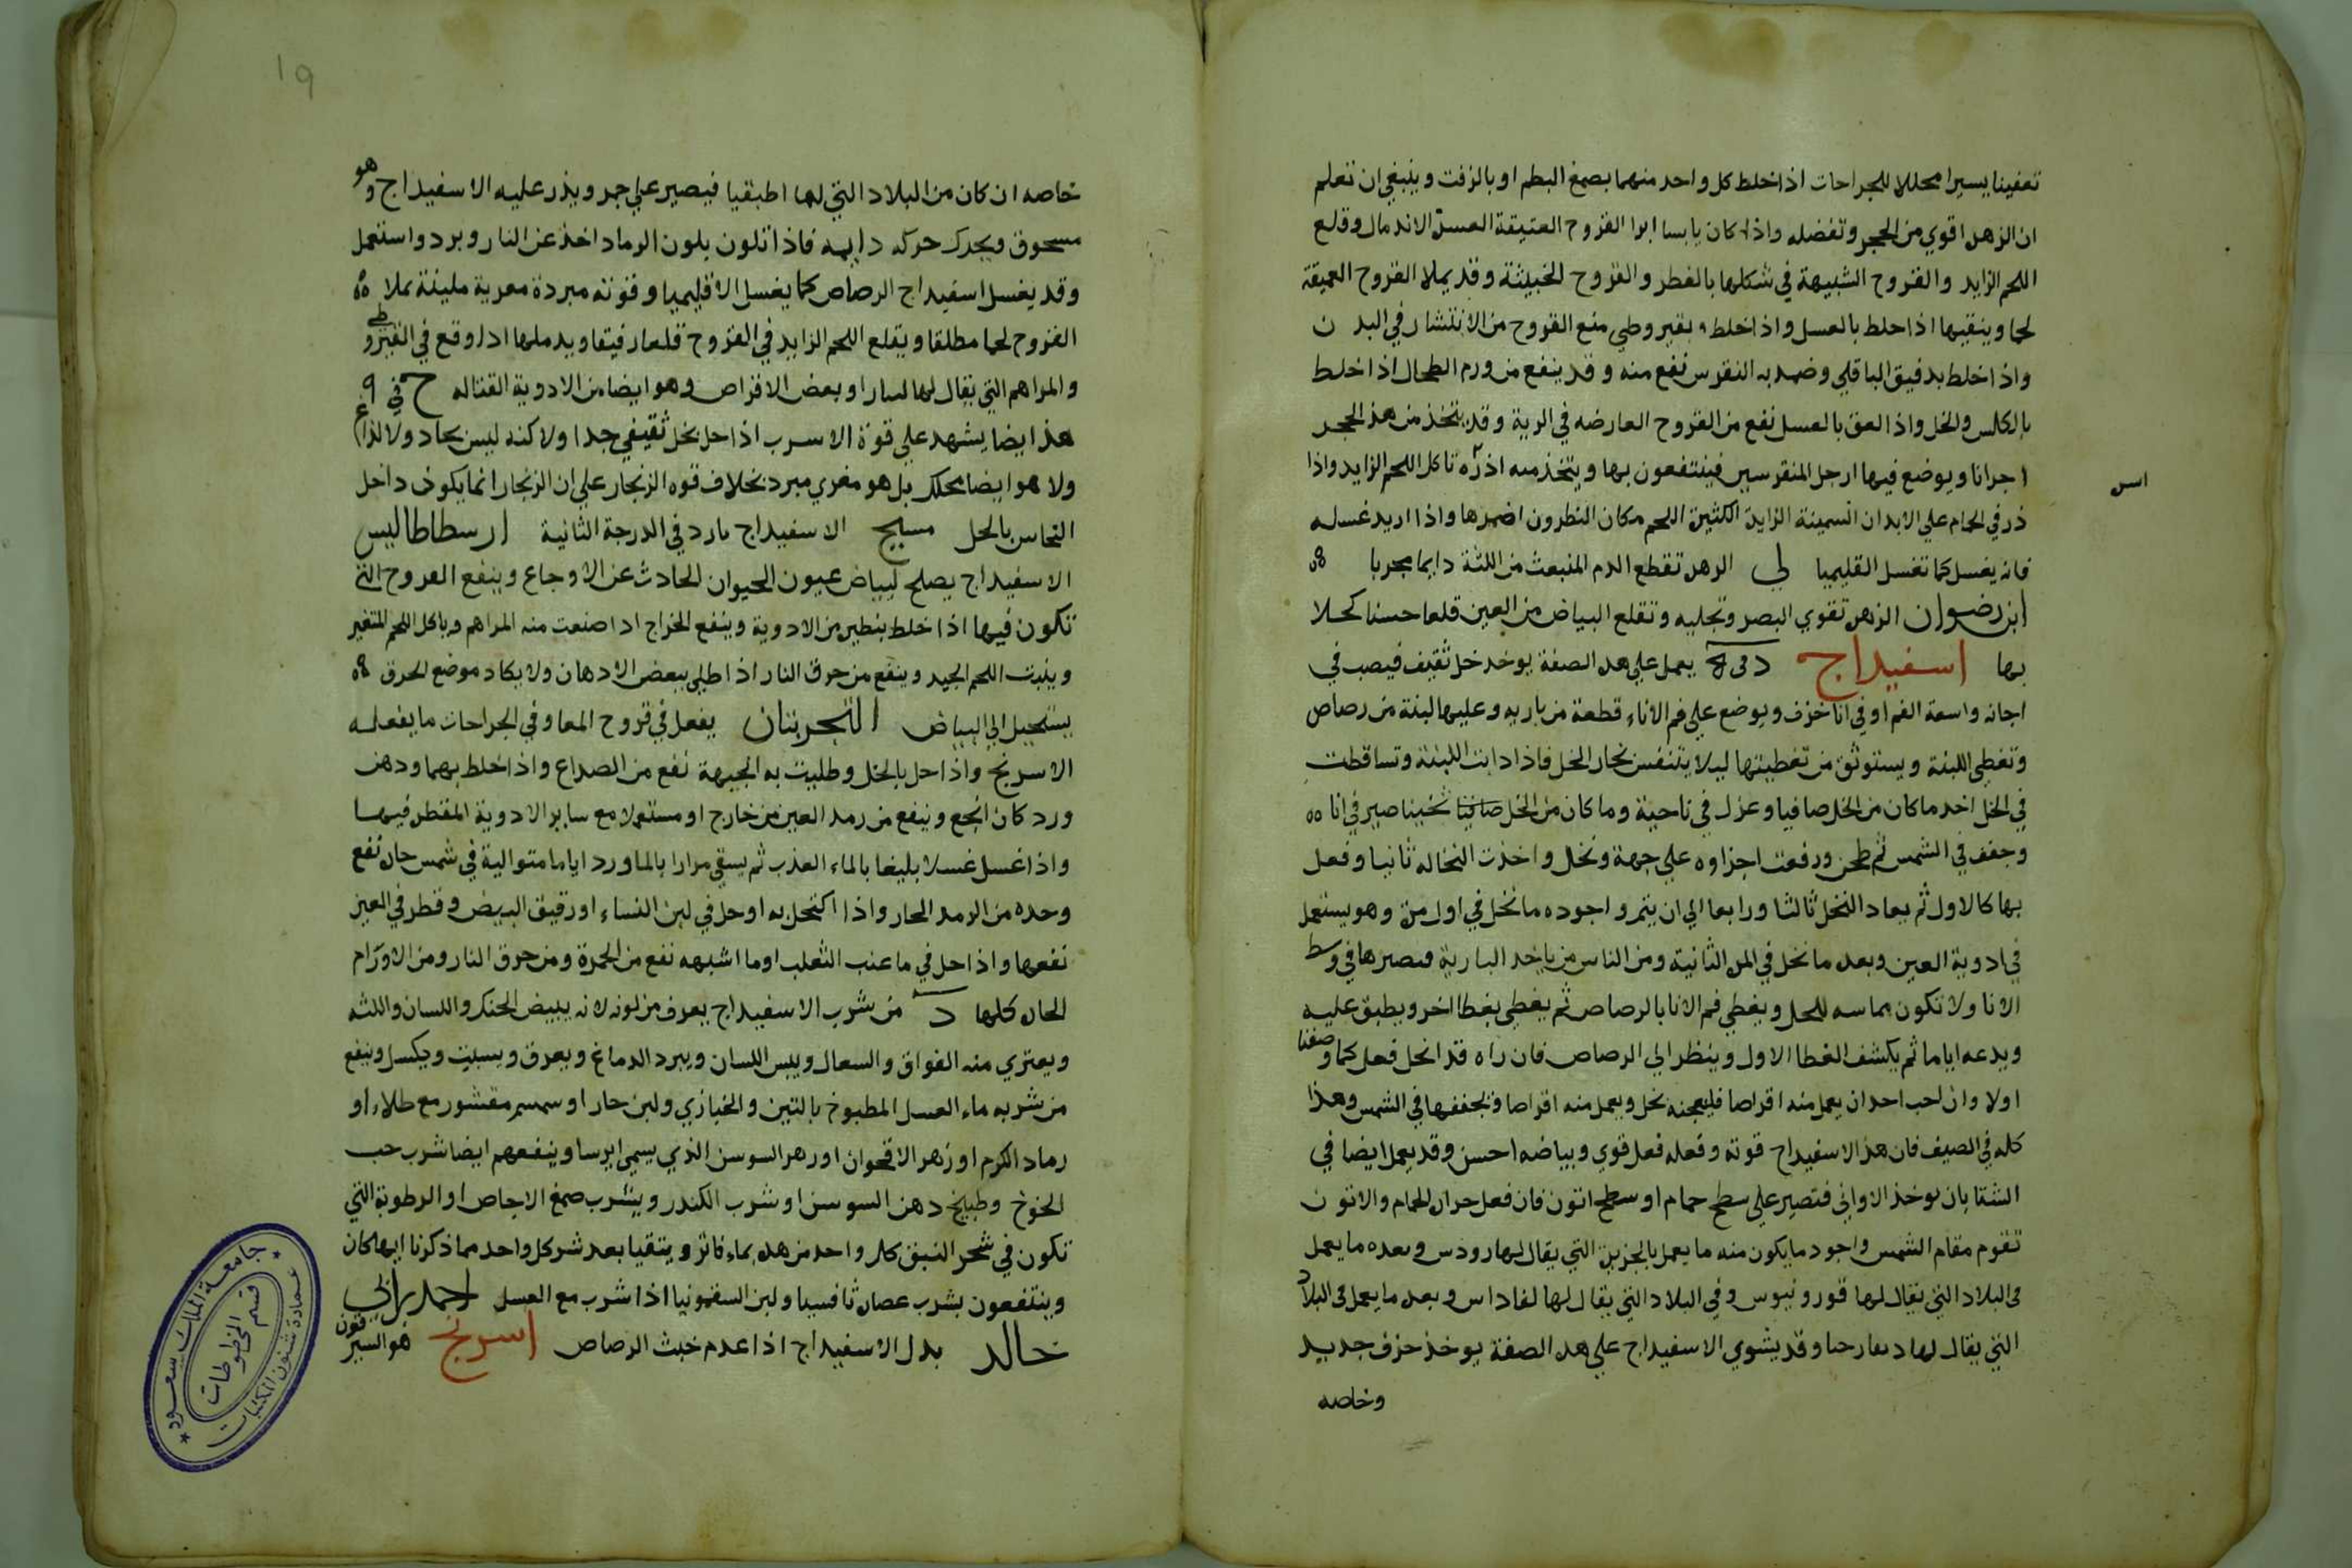 تعفينا يسيرا محللا للجراحات اذا خلط كل واحد منهما بصمغ البطم او بالزفت وينبغي ان تعلم
ان الزهر اقوي من الحجر وتفضله واذا كان يابسا ابرا القروح العتيقة العسرة الاندمال وقلع
اللحم الزايد والقروح الشبيهة في شكلها بالفطر والقروح الخبيثة وقد يملا القروح العميقة
لحما وينقيها اذا خلط بالعسل واذا خلط بقيروطي منع القروح من الانتشار في البدن
واذا خلط بدقيق الباقلي وضمد به النقرس نفع منه وقد ينفع من ورم الطحال اذا خلط
بالكلس والخل واذا العق بالعسل نفع من القروح العارضه في الرية وقد يتخذ من هذ الحجر
اجرانا ويوضع فيها ارجل المنقرسين فينتفعون بها ويتخذ منه اذرة تاكل اللحم الزايد واذا
اس
ذر في الحام علي الابدان السمينة الزايدة الكثيرة اللحم مكان النطرون اضمرها واذا اريد غسله
فانه يغسل كما تغسل القليميا لي الزهرة تقطع الدم المنبعث من اللثة دايما مجربا
ابن رضوان الزهرة تقوي البصر وتجليه وتقلع البياض من العين قلعا حسنا كحلا
بها اسفيداج د في ه يعمل علي هذه الصفة يوخد خل ثقيف فيصب في
اجانه واسعة الفم او في انا خزف ويوضع علي فم الاناء قطعة من باريه وعليها لبنة من رصاص
وتغطي اللبنة ويستوثق من تغطيتها ليلا يتنفس بخار الخل فاذا ذابت اللبنة وتساقطت
في الخل اخد ما كان من الخل صافيا وعزل في ناحية وما كان من الخل صافيا ثخينا صير في انا
وجفف في الشمس ثم طحن ورفعت اجزاوه علي جهة ونخل واخذت النخاله ثانيا وفعل
بها كالاول ثم يعاد النخل ثالثا ورابعا الي ان يتم واجوده ما نخل في اول مرة وهو يستعمل
في ادوية العين وبعده ما نخل في المرة الثانية ومن الناس من ياخد البارية فيصيرها في وسط
الانا ولا تكون مماسه للخل ويغطي فم الانا بالرصاص ثم يغطي بغطا اخر ويطبق عليه
ويدعه اياما ثم يكشف الغطا الاول وينظر الي الرصاص فان راه قد انحل فعل كما وصفنا
اولا وان احب احد ان يعمل منه اقراصا فليعجنه بخل ويعمل منه اقراصا ويجففها في الشمس وهذا
كله في الصيف فان هذ الاسفيداج قوته وفعله فعل قوي وبياضه احسن وقد يعمل ايضا في
الشتا بان يوخذ الاواني فتصير علي سطح حمام او سطح اتون فان فعل حرارة الحمام والاتون
تقوم مقام الشمس واجود ما يكون منه ما يعمل بالجزيرة التي يقال لها رودس وبعده ما يعمل
في البلاد التي يقال لها قورونيوس وفي البلاد التي يقال لها لقاداس وبعده ما يعمل في البلاد
التي يقال لها وقد يشوي الاسفيداج علي هذه الصفة يوخذ خزف جديد
وخاصه
19
خاصه ان كان من البلاد التي لها اطبقيا فيصير علي جمر ويذر عليه الاسفيداج وهو
مسحوق ويحرك حركه دايمه فاذا تلون بلون الرماد اخذ عن النار وبرد واستعمل
وقد يغسل اسفيداج الرصاص كما يغسل الاقليميا وقوته مبردة مغرية ملينة تملا
القروح لحما مطلقا ويقلع اللحم الزايد في القروح قلعا رفيقا ويدملها اذا وقع في القيروطي
والمراهم التي يقال لها لسارا وبعض الاقراص وهو ايضا من الادوية القتاله ج في 9
هذ ايضا يشهد علي قوة الاسرب اذا حل بخل ثقيف جدا ولا كنه ليس بحاد ولا لذاع
ولا هو ايضا محلل بل هو مغري مبرد بخلاف قوه الزنجار علي ان الزنجار انما يكون داخل
النحاس بالخل مسيح الاسفيداج بارد في الدرجة الثانية ارسطاطاليس
الاسفيداج يصلح لبياض عيون الحيوان الحادث عن الاوجاع وينفع القروح التي
تكون فيها اذا خلط بنظيره من الادوية وينفع الخراج اذا صنعت منه المراهم وياكل اللحم المتغير
وينبت اللحم الجيد وينفع من حرق النار اذا طلي ببعض الادهان ولا يكاد موضع الحرق
يستحيل الي البياض التجربتان يفعل في قروح المعا وفي الجراحات ما يفعله
الاسرنج واذا حل بالخل وطليت به الجبهة نفع من الصداع واذا خلط بهما ودهن
ورد كان انجع وينفع من رمد العين من خارج او مستعملا مع ساير الادوية المقطرة فيها
واذا غسل غسلا بليغا بالماء العذب ثم يسقي مرارا بالماورد اياما متوالية في شمس حارة نفع
وحده من الرمد الحار واذا اكتحل به او حل في لبن النساء او رقيق البيض وقطر في العين
نفعها واذا حل في ما عنب الثعلب او ما اشبهه نفع من الحمرة ومن حرق النار ومن الاورام
الحارة كلها د من شرب الاسفيداج يعرف من لونه لانه يبيض الحنك واللسان واللثه
ويعتري منه الفواق والسعال ويبس اللسان ويبرد الدماغ ويعرق ويسبت ويكسل وينفع
من شربه ماء العسل المطبوخ بالتين والخبازي ولبن حار او سمسم مقشور مع طلاء او
رماد الكرم او زهر الاقحوان او زهر السوسن الذي يسمي ايرسا وينفعهم ايضا شرب حب
الخوخ وطبيخ دهن السوسن او شرب الكندر ويشرب صمغ الاجاص او الرطوبة التي
تكون في شجر النبق كل واحد من هذه بماء فاتر ويتقيا بعد شر كل واحد مما ذكرنا ايها كان
وينتفعون بشرب عصارة ثافسيا ولبن السقمونيا اذا شرب مع العسل احمد بن ابي
خالد بدل الاسفيداج اذا عدم خبث الرصاص اسرنج هو السيرقون
جامعة الملك سعود
عمادة شئون المكتبات
قسم المخطوطات